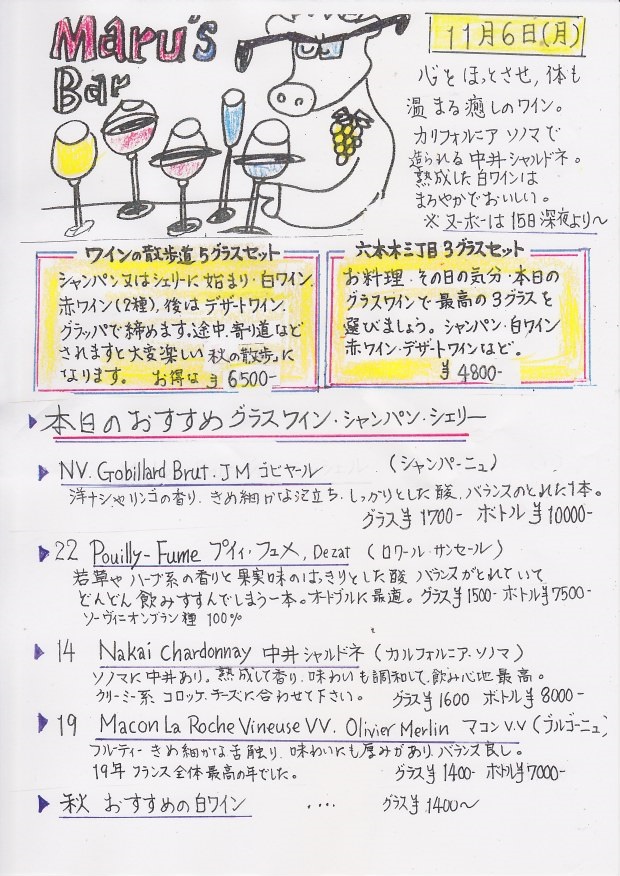 Maru's
Bar
11月6日(月)
心をほっとさせ、体も
温まる癒しのワイン。
カリフォルニア ソノマで
造られる中井シャルドネ。
熟成した白ワインは
まろやかでおいしい。
※ヌーボーは15日深夜より〜
ワインの散歩道5グラスセット
シャンパン又はシェリーに始まり・白ワイン、
赤ワイン(2種)、後はデザートワイン、
グラッパで締めます。途中、寄り道など
されますと大変楽しい秋の「散歩」に
なります。 お得な ¥6500-
六本木三丁目3グラスセット
お料理 その日の気分・本日の
グラスワインで最高の3グラスを
選びましょう。シャンパン・白ワイン
赤ワイン・デザートワインなど。
¥4800-
本日のおすすめグラスワイン・シャンパン・シェリー
NV. Gobillard Brut. JM ゴビヤール (シャンパーニュ)
洋ナシやリンゴの香り、きめ細かな泡立ち、しっかりとした酸、バランスのとれた1本。
グラス¥1700- ボトル¥10000-
22 Pouilly-Fume プイィ・フュメ, Dezat (ロワール・サンセール)
若草やハーブ系の香りと果実味のはっきりとした酸 バランスがとれていて
どんどん飲みすすんでしまう一本。オードブルに最適。 グラス¥1500- ボトル¥7500-
ソーヴィニオンブラン種 100%
14 Nakai Chardonnay 中井シャルドネ (カルフォルニア・ソノマ)
ソノマに中井あり。熟成して香り、味わいも調和して、飲み心地最高。
クリーミー系 コロッケ、チーズに合わせて下さい。 グラス¥1600 ボトル¥8000-
19 Macon La Roche Vineuse VV. Olivier Merlin マコンV.V (ブルゴーニュ)
フルーティー きめ細かな舌触り、味わいにも厚みがあり、バランス良し。
19年 フランス全体最高の年でした。 グラス¥1400- ボトル¥7000-
秋 おすすめの白ワイン ‥‥ グラス¥1400〜